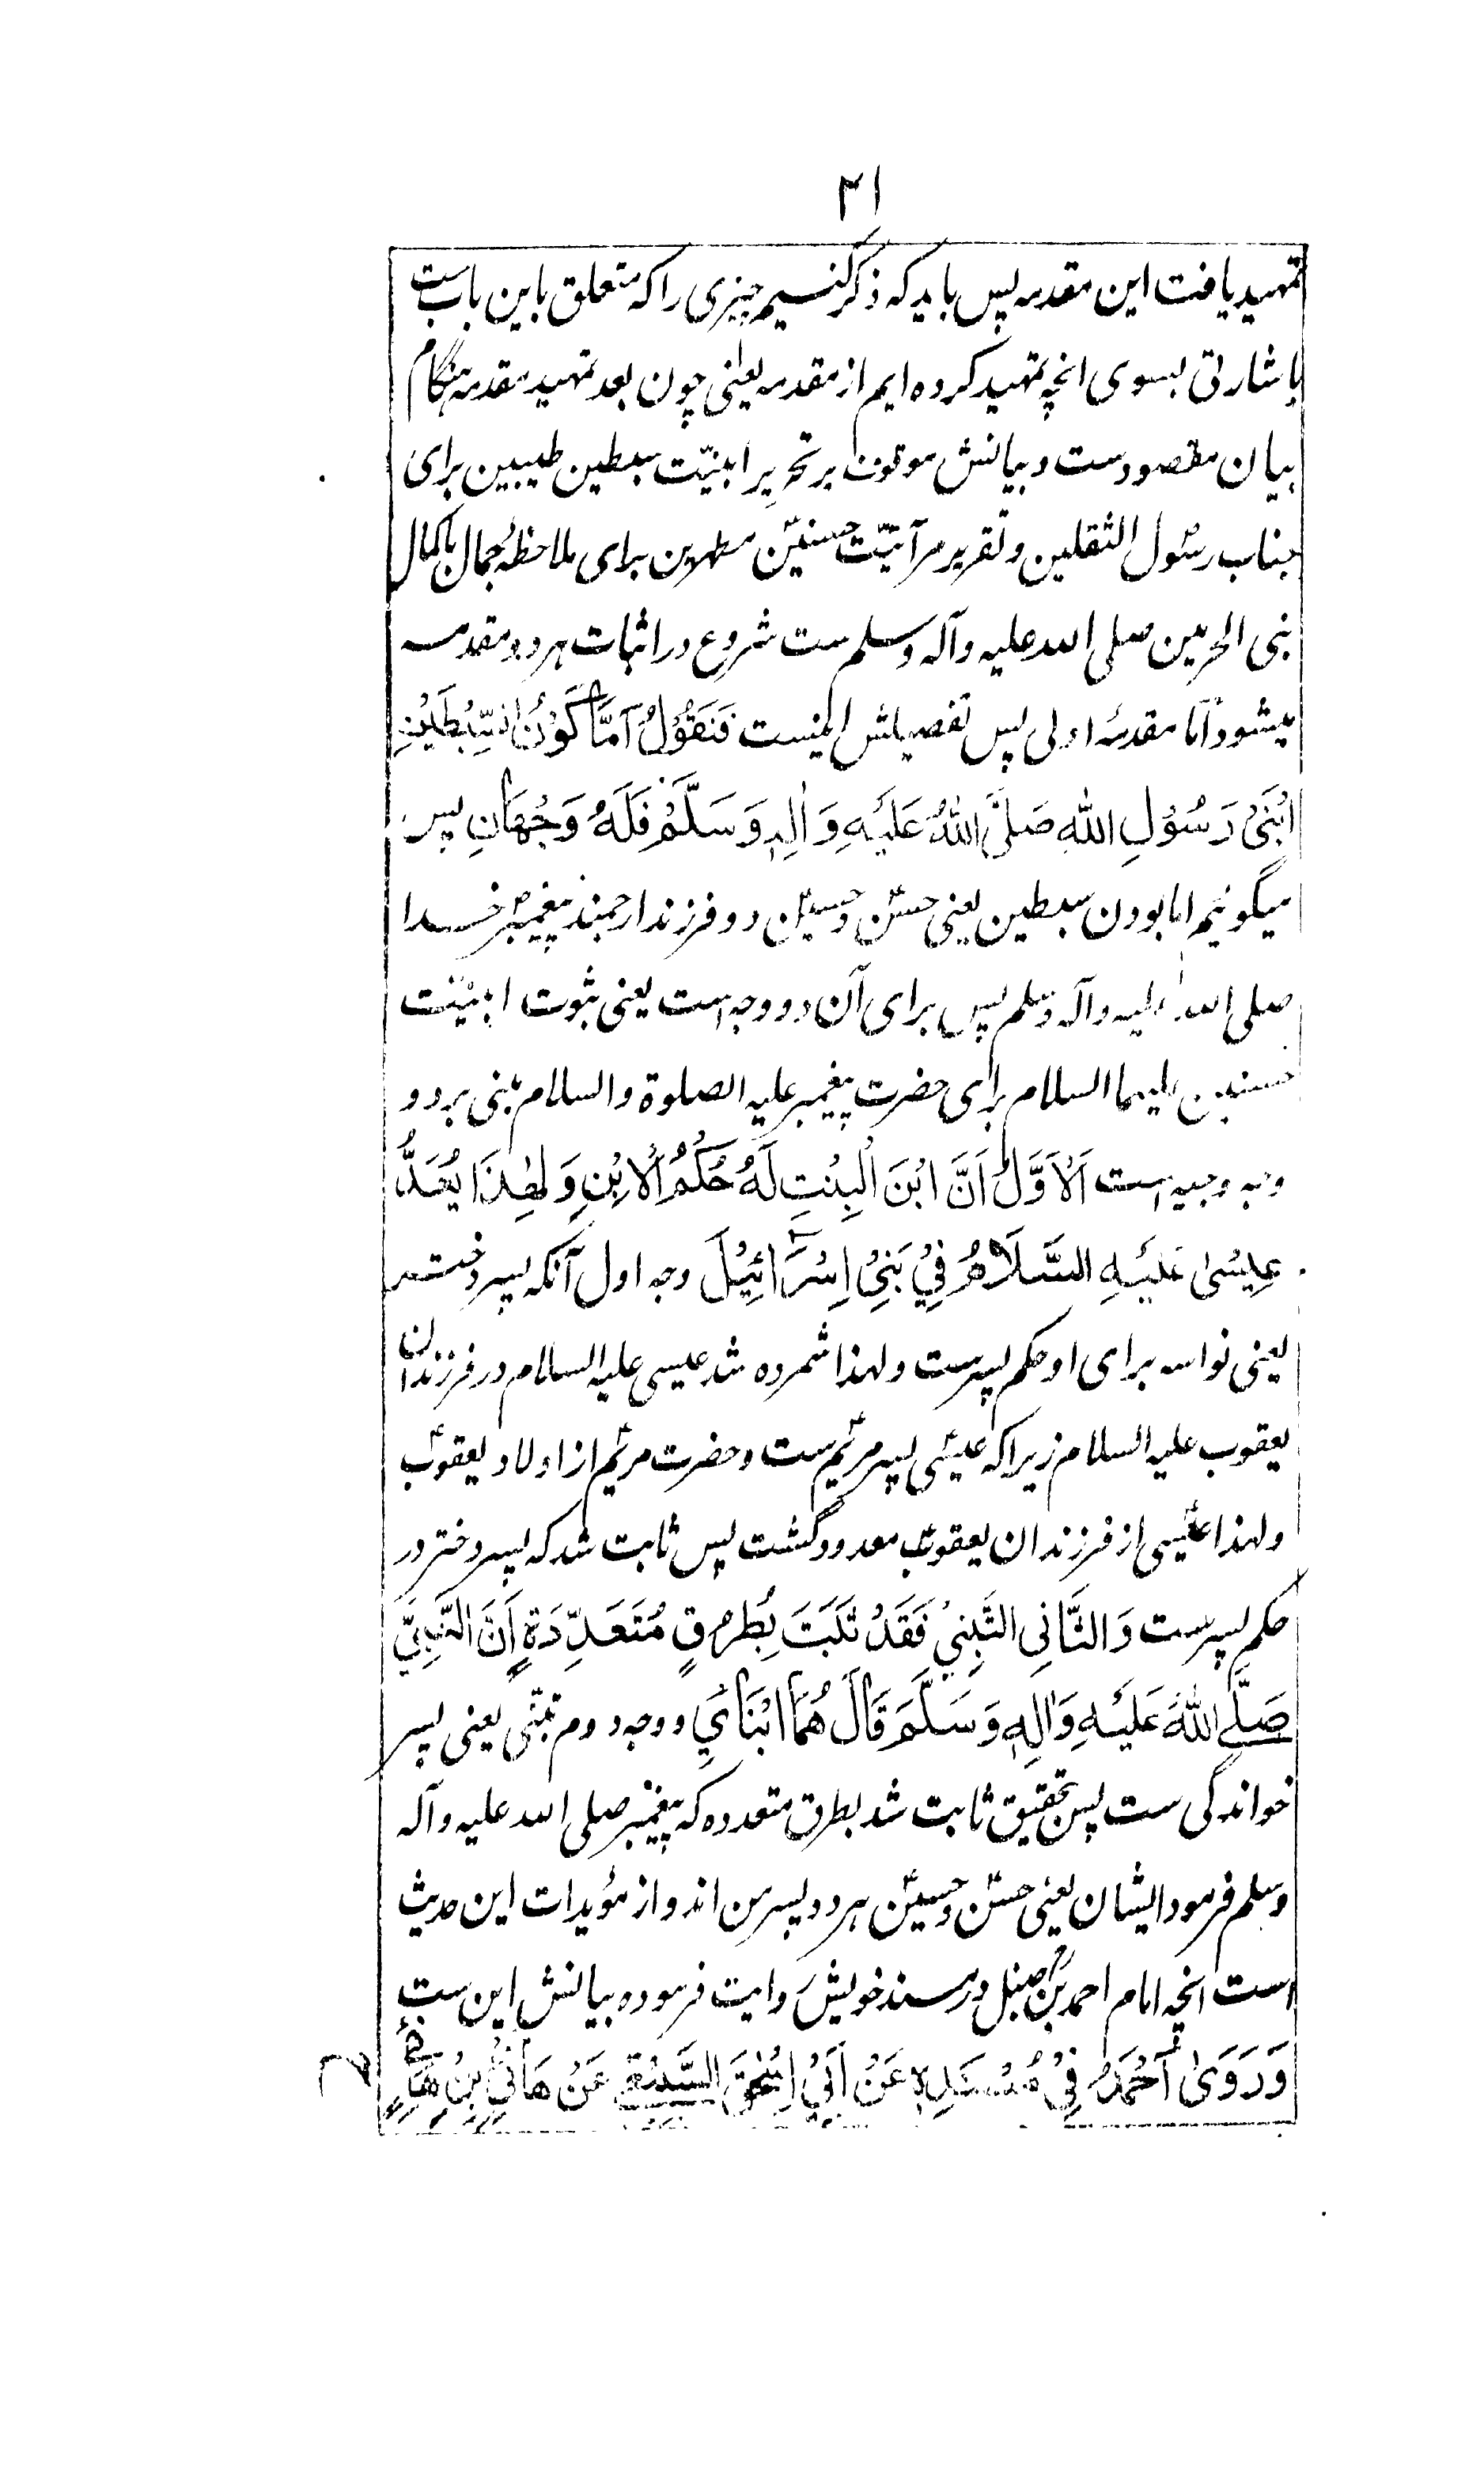 ۲۱
تمهید یافت این مقدمه پس باید که ذکر کنیم چیزی را که متعلق باین باب ست
باشارتی بسوی انچه تمهید کرده ایم از مقدمه یعنی چون بعد تمهید مقدمه هنگام
بیان مقصود ست و بیانش موقوف بر تحریر ابنیّت سبطین طیبین برای
جناب رسُول الثقلین و تقریر مرآتیّت حسنینؑ مطهرین برای ملاحظهٔ جمال باکمال
نبی الحرمین صلی الله علیه وآله وسلم ست شروع در اثبات هر دو مقدمه
میشود امّا مقدمهٔ اولی پس تفصیلش اینست فَنَقُوْلُ اَمَّا كَوْنُ السِّبْطَيْنِ
ابْنَيْ رَسُوْلِ اللّٰهِ صَلَّى اللّٰهُ عَلَيْهِ وَاٰلِهٖ وَسَلَّمَ فَلَهُ وَجْهَانِ پس
میگوئیم اما بودن سبطین یعنی حسنؑ و حسینؑ دو فرزند ارجمند پیغمبرؐ خدا
صلی الله علیه وآله وسلم پس برای آن دو وجه است یعنی ثبوت ابنیّت
حسنین علیهما السلام برای حضرت پیغمبر علیه الصلوة والسلام مبنی بر دو
وجه وجیه است اَلْاَوَّلُ اَنَّ ابْنَ الْبِنْتِ لَهُ حُكْمُ الْاِبْنِ وَلِهٰذَا يُعَدُّ
عِيْسٰى عَلَيْهِ السَّلَامُ فِيْ بَنِيْ اِسْرَائِيْلَ وجه اول آنکه پسر دختر
یعنی نواسه برای او حکم پسرست ولهذا شمرده شد عیسی علیه السلام در فرزندان
یعقوب علیه السلام زیراکه عیسیؑ پسر مریمؑ ست و حضرت مریمؑ از اولاد یعقوبؑ
ولهذا عیسیؑ از فرزندان یعقوبؑ معدود گشت پس ثابت شد که پسر دختر در
حکم پسرست وَالثَّانِي التَّبَنِّيْ فَقَدْ ثَبَتَ بِطُرُقٍ مُتَعَدِّدَةٍ اَنَّ النَّبِيَّ
صَلَّى اللّٰهُ عَلَيْهِ وَاٰلِهٖ وَسَلَّمَ قَالَ هُمَا ابْنَايَ و وجه دوم تبنّی یعنی پسر
خواندگی ست پس تحقیق ثابت شد بطرق متعدده که پیغمبر صلی الله علیه وآله
وسلم فرمود ایشان یعنی حسنؑ و حسینؑ هر دو پسر من اند و از مؤیدات این حدیث
است انچه امام احمد بن حنبل در مسند خویش روایت فرموده بیانش این ست
وَرَوٰى اَحْمَدُ فِيْ مُسْنَدِهٖ عَنْ اَبِيْ اِسْحٰقَ عَنْ هَانِيْ بْنِ هَانِيْ